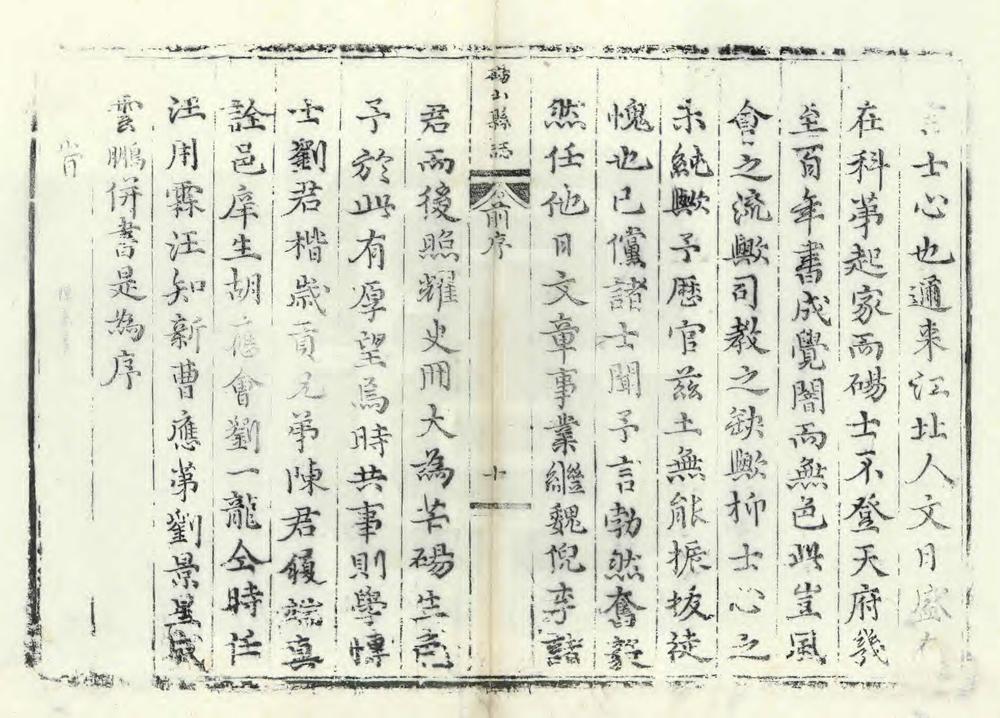 士心也邇来江北人文日盛
在科第起家而碭士不登天府幾
至百年書成覺闇而無色此豈風
會之流歟司教之缺歟抑士心之
未純歟予歴官兹土無能振拔徒
愧也已儻諸士聞予言勃然奮毅
然任他日文章事業繼魏倪李諸
碭山縣誌
前序
十
君而後照耀史冊大為芒碭生色
予於此有厚望焉時共事則學博
士劉君楷歲貢兄弟陳君履端真
詮邑庠生胡應會劉一龍仝時任
汪用霖汪知新曹應第劉景星戚
雲鵬併書是為序